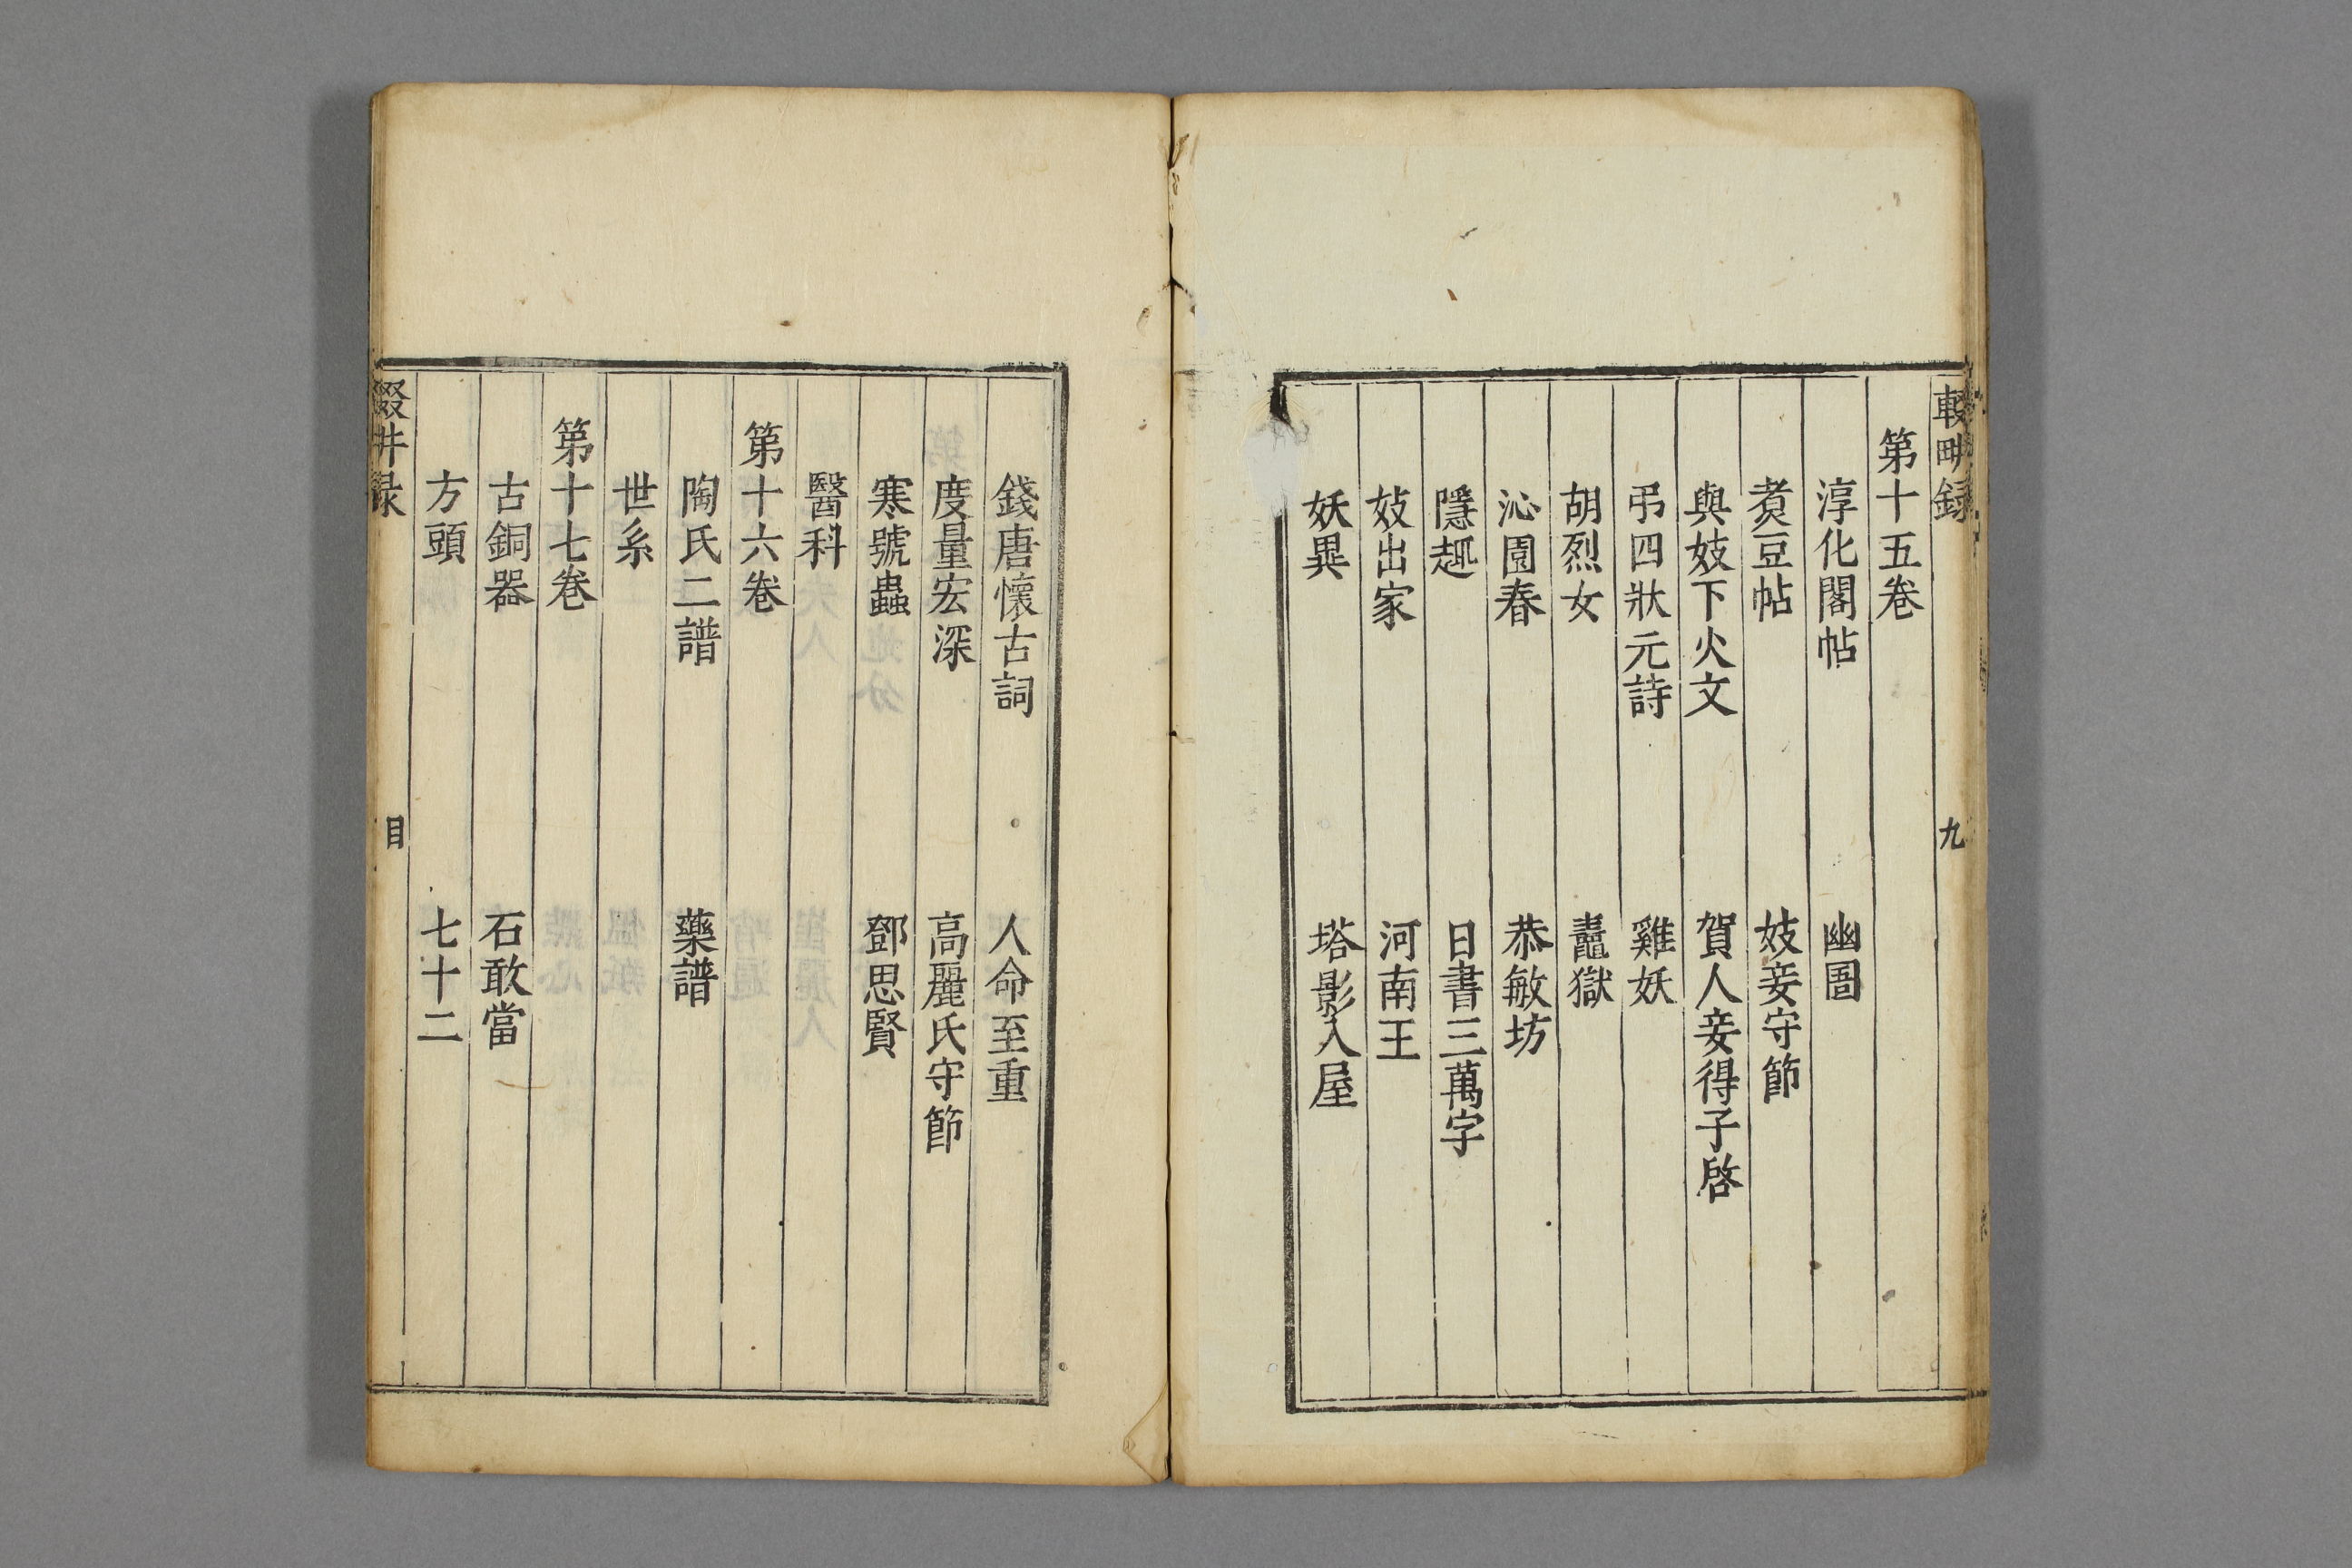 輟畊録 九
第十五卷
淳化閣帖 幽圖
煑豆帖 妓妾守節
與妓下火文 賀人妾得子啓
弔四狀元詩 雞妖
胡烈女 蠹獄
沁園春 恭敏坊
隱趣 日書三萬字
妓出家 河南王
妖異 塔影入屋
錢唐懷古詞 人命至重
度量宏深 高麗氏守節
寒號蟲 鄧思賢
醫科
第十六卷
陶氏二譜 藥譜
世系
第十七卷
古銅器 石敢當
方頭 七十二
輟畊録 目